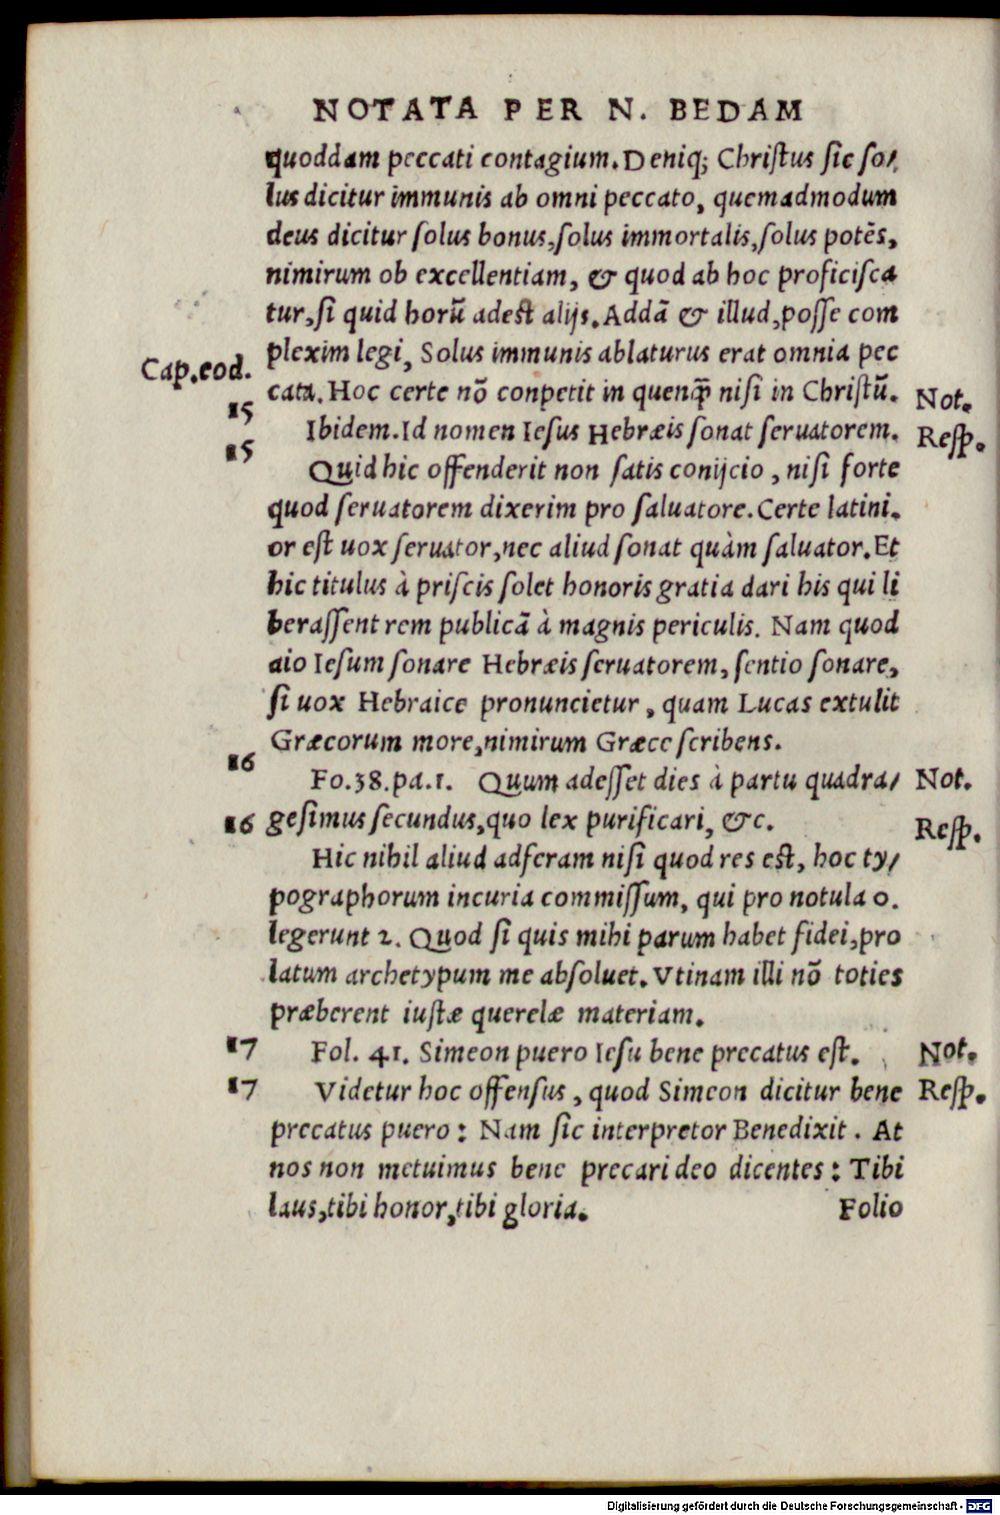 NOTATA PER N. BEDAM
quoddam peccati contagium. Deniq; Christus sic so/
lus dicitur immunis ab omni peccato, quemadmodum
deus dicitur solus bonus, solus immortalis, solus potẽs,
nimirum ob excellentiam, & quod ab hoc proficisca
tur, si quid horũ adest alijs. Addã & illud, posse com
plexim legi, Solus immunis ablaturus erat omnia pec
Cap. eod.
cata. Hoc certe nõ conpetit in quenq̃ nisi in Christũ.
15 Not.
Ibidem. Id nomen Iesus Hebræis sonat seruatorem.
15 Resp.
Quid hic offenderit non satis conijcio, nisi forte
quod seruatorem dixerim pro saluatore. Certe latini.
or est uox seruator, nec aliud sonat quàm saluator. Et
hic titulus à priscis solet honoris gratia dari his qui li
berassent rem publicã à magnis periculis. Nam quod
aio Iesum sonare Hebræis seruatorem, sentio sonare,
si uox Hebraice pronuncietur, quam Lucas extulit
Græcorum more, nimirum Græce scribens.
16 Not.
Fo. 38. pa. 1. Quum adesset dies à partu quadra/
gesimus secundus, quo lex purificari, &c.
16 Resp.
Hic nihil aliud adferam nisi quod res est, hoc ty/
pographorum incuria commissum, qui pro notula 0.
legerunt 2. Quod si quis mihi parum habet fidei, pro
latum archetypum me absoluet. Vtinam illi nõ toties
præberent iustæ querelæ materiam.
17 Fol. 41. Simeon puero Iesu bene precatus est. Not.
17 Videtur hoc offensus, quod Simeon dicitur bene Resp.
precatus puero: Nam sic interpretor Benedixit. At
nos non metuimus bene precari deo dicentes: Tibi
laus, tibi honor, tibi gloria. Folio
Digitalisierung gefördert durch die Deutsche Forschungsgemeinschaft - DFG